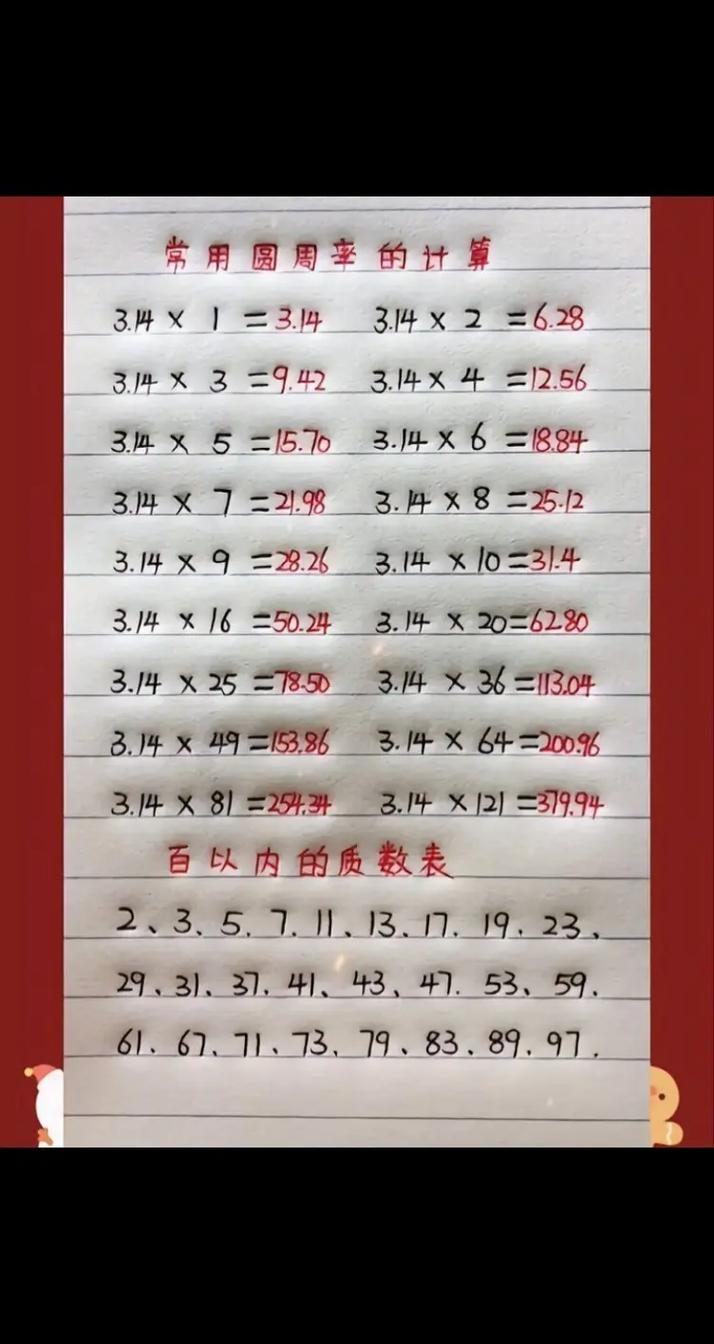 常用圆周率的计算
3.14 × 1 = 3.14 3.14 × 2 = 6.28
3.14 × 3 = 9.42 3.14 × 4 = 12.56
3.14 × 5 = 15.70 3.14 × 6 = 18.84
3.14 × 7 = 21.98 3.14 × 8 = 25.12
3.14 × 9 = 28.26 3.14 × 10 = 31.4
3.14 × 16 = 50.24 3.14 × 20 = 62.80
3.14 × 25 = 78.50 3.14 × 36 = 113.04
3.14 × 49 = 153.86 3.14 × 64 = 200.96
3.14 × 81 = 254.34 3.14 × 121 = 379.94
百以内的质数表
2、3、5、7、11、13、17、19、23、
29、31、37、41、43、47、53、59、
61、67、71、73、79、83、89、97.